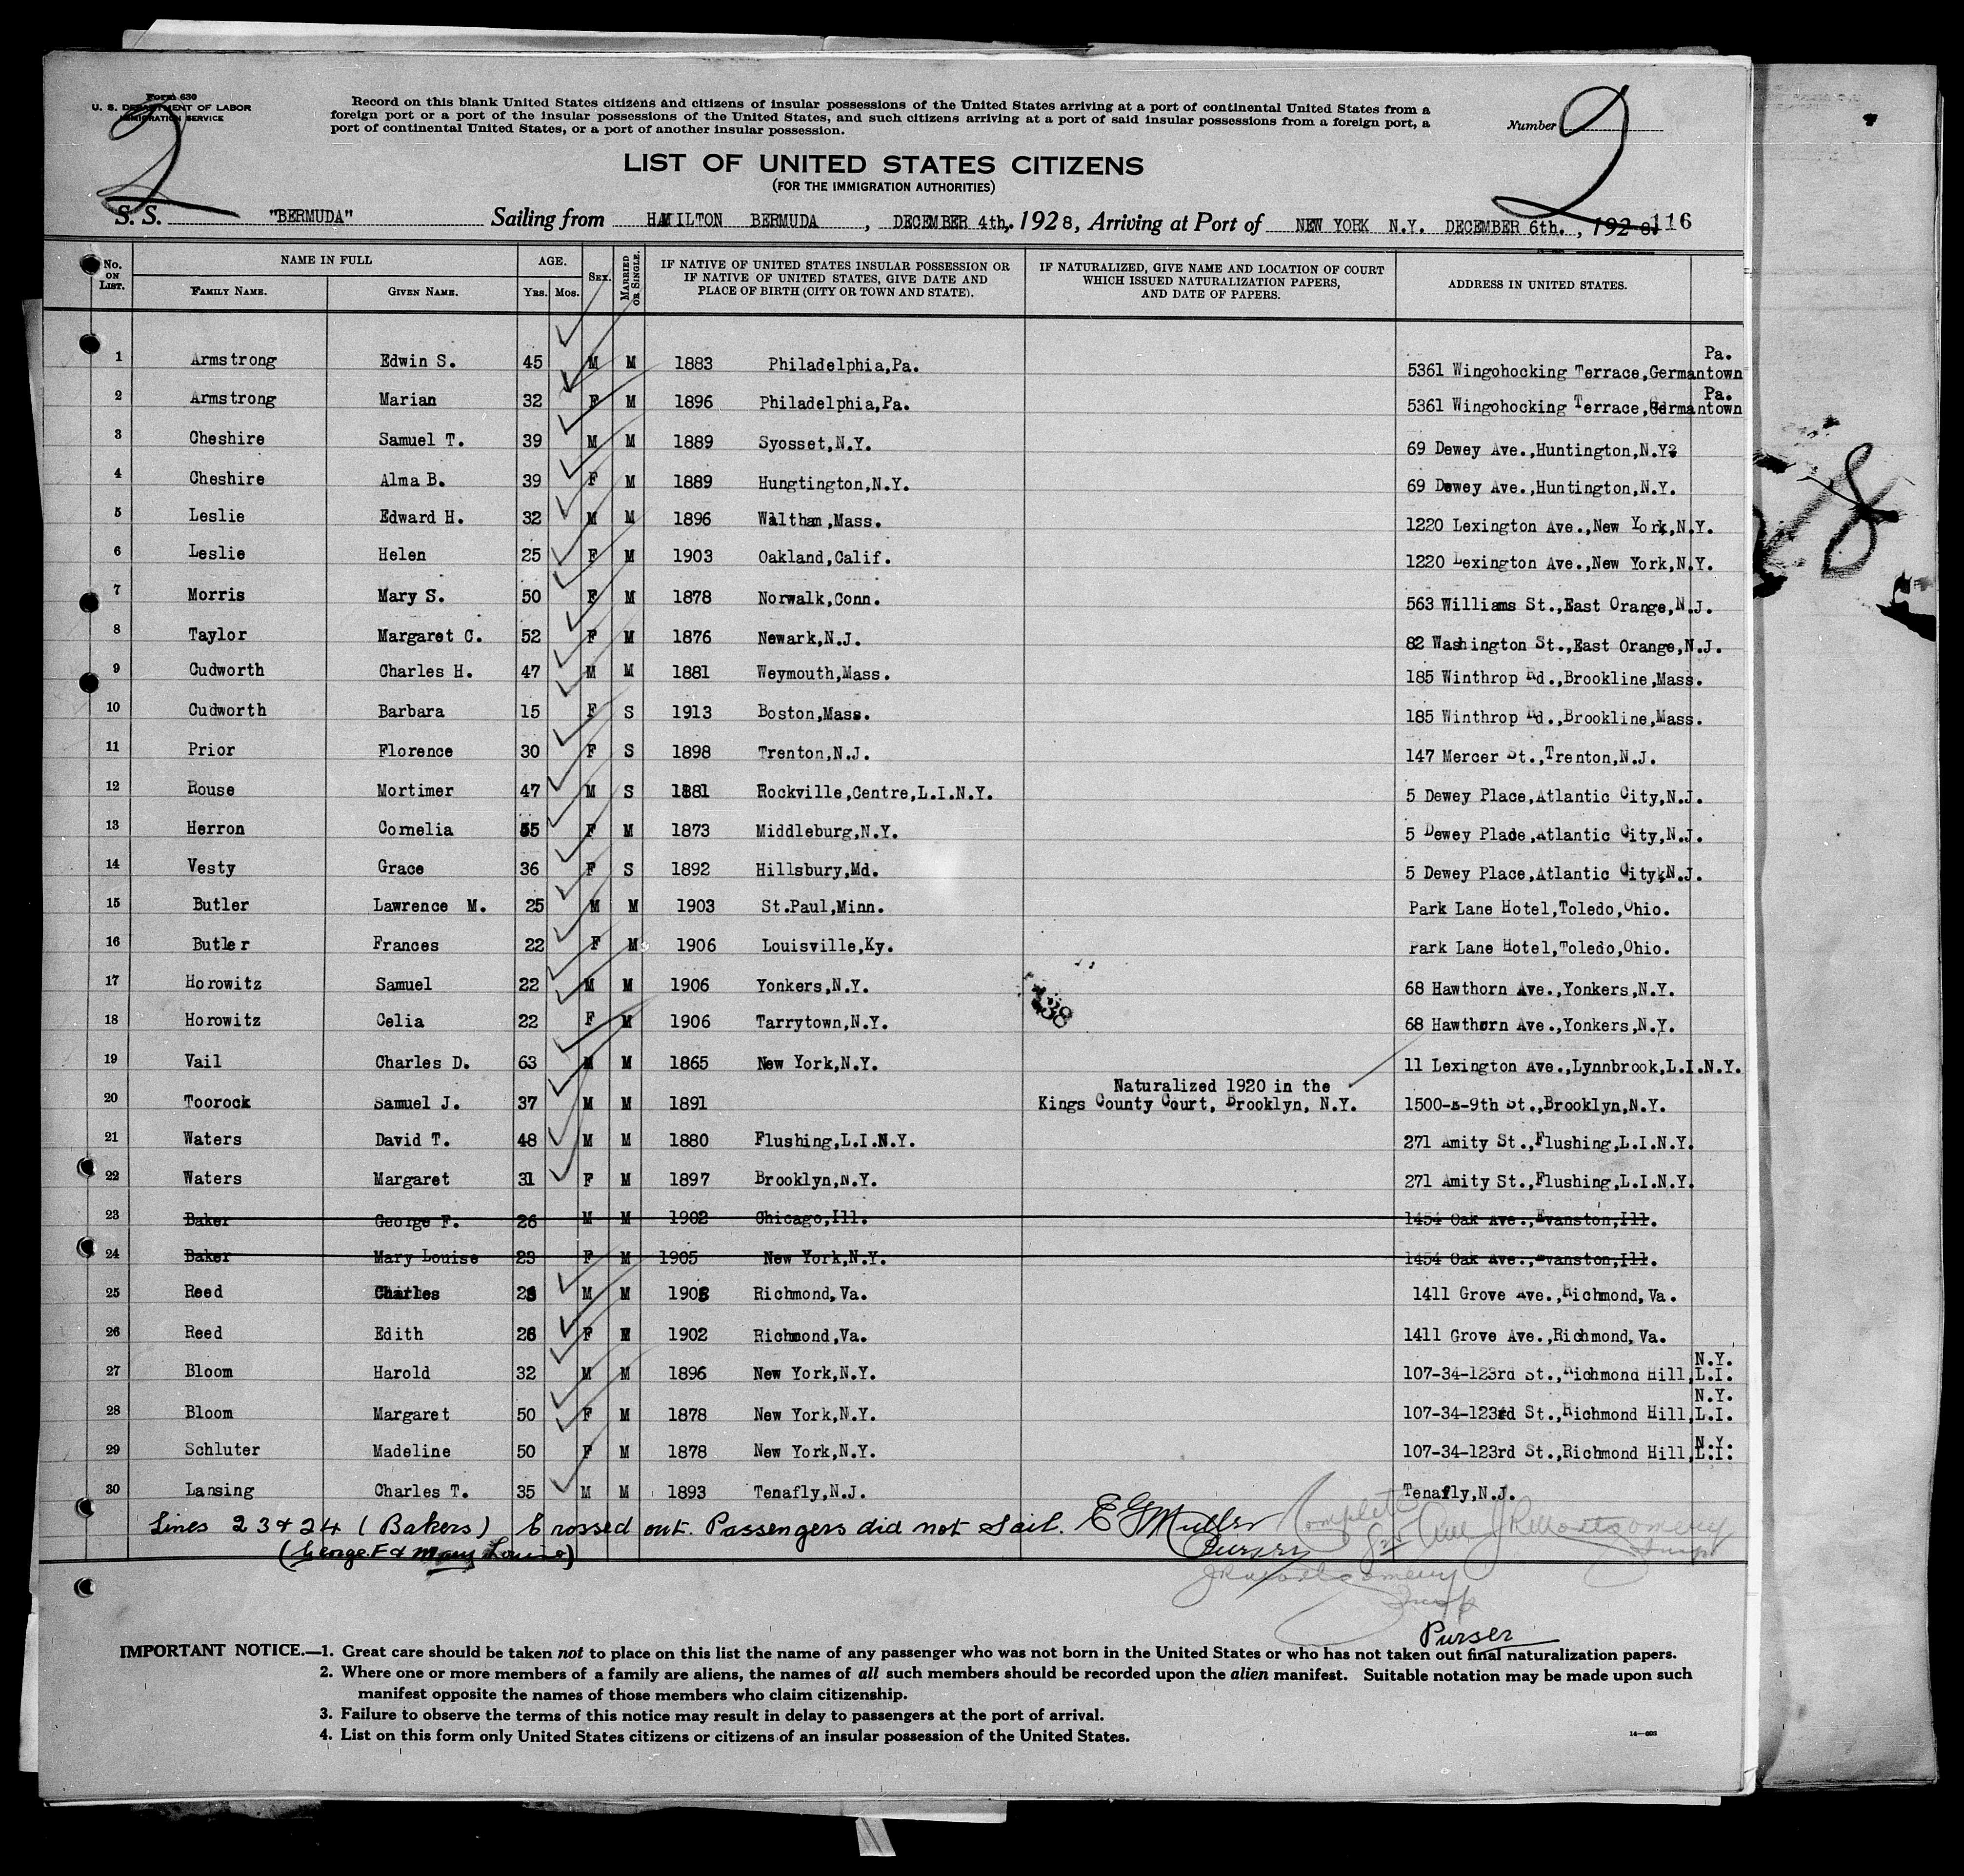 Form 630
U. S. DEPARTMENT OF LABOR
IMMIGRATION SERVICE
2
Record on this blank United States citizens and citizens of insular possessions of the United States arriving at a port of continental United States from a
foreign port or a port of the insular possessions of the United States, and such citizens arriving at a port of said insular possessions from a foreign port, a
port of continental United States, or a port of another insular possession.
Number 2
LIST OF UNITED STATES CITIZENS
(FOR THE IMMIGRATION AUTHORITIES)
S. S. "BERMUDA" Sailing from HAMILTON BERMUDA , DECEMBER 4th,. 1928, Arriving at Port of NEW YORK N.Y. DECEMBER 6th. , 192 8. 116
No. ON LIST. NAME IN FULL FAMILY NAME. GIVEN NAME. AGE. Yrs. Mos. SEX. MARRIED OR SINGLE. IF NATIVE OF UNITED STATES INSULAR POSSESSION OR IF NATIVE OF UNITED STATES, GIVE DATE AND PLACE OF BIRTH (CITY OR TOWN AND STATE). IF NATURALIZED, GIVE NAME AND LOCATION OF COURT WHICH ISSUED NATURALIZATION PAPERS, AND DATE OF PAPERS. ADDRESS IN UNITED STATES.
1 Armstrong Edwin S. 45 M M 1883 Philadelphia,Pa. 5361 Wingohocking Terrace,Germantown Pa.
2 Armstrong Marian 32 F M 1896 Philadelphia,Pa. 5361 Wingohocking Terrace,Germantown Pa.
3 Cheshire Samuel T. 39 M M 1889 Syosset,N.Y. 69 Dewey Ave.,Huntington,N.Y.
4 Cheshire Alma B. 39 F M 1889 Hungtington,N.Y. 69 Dewey Ave.,Huntington,N.Y.
5 Leslie Edward H. 32 M M 1896 Waltham,Mass. 1220 Lexington Ave.,New York,N.Y.
6 Leslie Helen 25 F M 1903 Oakland,Calif. 1220 Lexington Ave.,New York,N.Y.
7 Morris Mary S. 50 F M 1878 Norwalk,Conn. 563 Williams St.,East Orange,N.J.
8 Taylor Margaret C. 52 F M 1876 Newark,N.J. 82 Washington St.,East Orange,N.J.
9 Cudworth Charles H. 47 M M 1881 Weymouth,Mass. 185 Winthrop Rd.,Brookline,Mass.
10 Cudworth Barbara 15 F S 1913 Boston,Mass. 185 Winthrop Rd.,Brookline,Mass.
11 Prior Florence 30 F S 1898 Trenton,N.J. 147 Mercer St.,Trenton,N.J.
12 Rouse Mortimer 47 M S 1881 Rockville,Centre,L.I.N.Y. 5 Dewey Place,Atlantic City,N.J.
13 Herron Cornelia 55 F M 1873 Middleburg,N.Y. 5 Dewey Plade,Atlantic City,N.J.
14 Vesty Grace 36 F S 1892 Hillsbury,Md. 5 Dewey Place,Atlantic City,N.J.
15 Butler Lawrence M. 25 M M 1903 St.Paul,Minn. Park Lane Hotel,Toledo,Ohio.
16 Butler Frances 22 F M 1906 Louisville,Ky. Park Lane Hotel,Toledo,Ohio.
17 Horowitz Samuel 22 M M 1906 Yonkers,N.Y. 68 Hawthorn Ave.,Yonkers,N.Y.
18 Horowitz Celia 22 F M 1906 Tarrytown,N.Y. 68 Hawthorn Ave.,Yonkers,N.Y.
19 Vail Charles D. 63 M M 1865 New York,N.Y. 11 Lexington Ave.,Lynnbrook,L.I.N.Y.
Naturalized 1920 in the
20 Toorock Samuel J. 37 M M 1891 Kings County Court, Brooklyn, N.Y. 1500-E-9th St.,Brooklyn,N.Y.
21 Waters David T. 48 M M 1880 Flushing,L.I.N.Y. 271 Amity St.,Flushing,L.I.N.Y.
22 Waters Margaret 31 F M 1897 Brooklyn,N.Y. 271 Amity St.,Flushing,L.I.N.Y.
23 Baker George F. 26 M M 1902 Chicago,Ill. 1454 Oak Ave.,Evanston,Ill.
24 Baker Mary Louise 23 F M 1905 New York,N.Y. 1454 Oak Ave.,Evanston,Ill.
25 Reed Charles M M Richmond,Va. 1411 Grove Ave.,Richmond,Va.
26 Reed Edith 26 F M 1902 Richmond,Va. 1411 Grove Ave.,Richmond,Va.
27 Bloom Harold 32 M M 1896 New York,N.Y. 107-34-123rd St.,Richmond Hill,L.I. N.Y.
28 Bloom Margaret 50 F M 1878 New York,N.Y. 107-34-123rd St.,Richmond Hill,L.I. N.Y.
29 Schluter Madeline 50 F M 1878 New York,N.Y. 107-34-123rd St.,Richmond Hill,L.I. N.Y.
30 Lansing Charles T. 35 M M 1893 Tenafly,N.J. Tenafly,N.J.
Lines 23 & 24 (Bakers) Crossed out. Passengers did not Sail. E G Muller
(George.F & Mary Louise) Purser
Complete
J R Montgomery
Insp
J R Montgomery
Insp
Purser
IMPORTANT NOTICE.—1. Great care should be taken not to place on this list the name of any passenger who was not born in the United States or who has not taken out final naturalization papers.
2. Where one or more members of a family are aliens, the names of all such members should be recorded upon the alien manifest. Suitable notation may be made upon such
manifest opposite the names of those members who claim citizenship.
3. Failure to observe the terms of this notice may result in delay to passengers at the port of arrival.
4. List on this form only United States citizens or citizens of an insular possession of the United States.